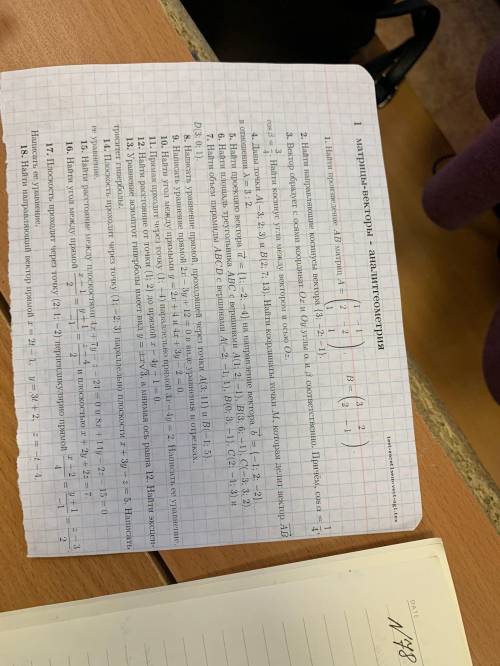 1 матрицы-векторы - аналитгеометрия
1. Найти произведение AB матриц A = ( 1 −1 / 2 −2 / 1 1 ) B = ( 3 −2 / 2 −1 )
2. Найти направляющие косинусы вектора {3; −2; −1}.
3. Вектор образует с осями координат Ox и Oy углы α и β соответственно. Причём, cos α = 1/4,
cos β = 3/4. Найти косинус угла между вектором и осью Oz.
4. Даны точки A(−3; 2; 3) и B(2; 7; 13). Найти координаты точки M, которая делит вектор AB
в отношении λ = 3 : 2.
5. Найти проекцию вектора a = {1; −2; −4} на направление вектора b = {−1; 2; −2}.
6. Найти площадь треугольника ABC с вершинами A(1; 2; −1), B(3; 6; −1), C(−3; 3; 2).
7. Найти объем пирамиды ABCD с вершинами A(−2; −1; 1), B(0; 3; −1), C(2; −4; 3) и
D(3; 0; 1).
8. Написать уравнение прямой, проходящей через точки A(3; 11) и B(−1; 5).
9. Написать уравнение прямой 2x − 3y + 12 = 0 в виде уравнения в отрезках.
10. Найти угол между прямыми y = 2x + 4 и 4x + 3y − 2 = 0.
11. Прямая проходит через точку (1; −4) параллельно прямой 3x − 4y = 2. Написать ее уравнение.
12. Найти расстояние от точки (1; 2) до прямой x − 4y − 1 = 0.
13. Уравнение асимптот гиперболы имеет вид y = ±x, а мнимая ось равна 12. Найти эксцен-
триситет гиперболы.
14. Плоскость проходит через точку (1; −2; 3) параллельно плоскости x + 3y − z = 5. Написать
ее уравнение.
15. Найти расстояние между плоскостями
16. Найти угол между прямой и плоскостью x + 2y + 2z = 7.
17. Плоскость проходит через точку (2; 1; −2) перпендикулярно прямой
Написать ее уравнение.
18. Найти направляющий вектор прямой x = 2t − 1, y = 3t + 2, z = −t − 4.
DATE
N78